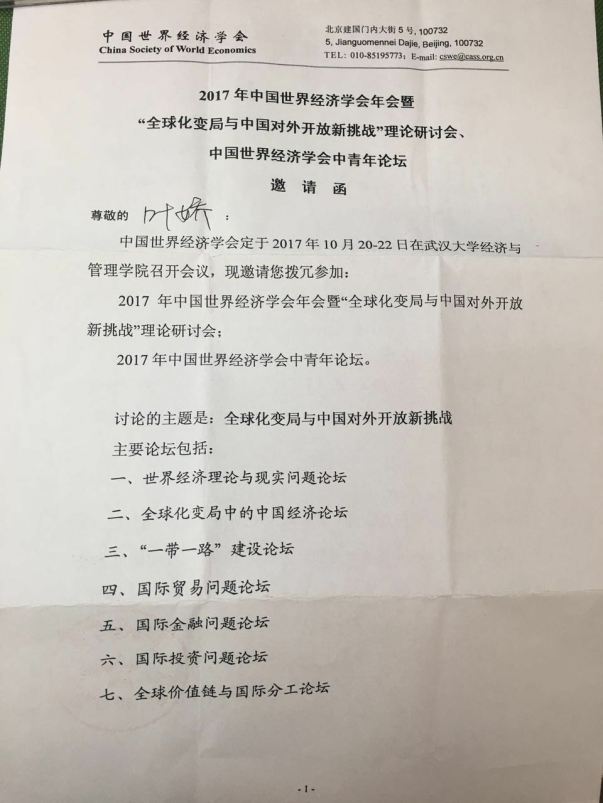 中国世界经济学会
China Society of World Economics
北京建国门内大街5号, 100732
5, Jianguomennei Dajie, Beijing, 100732
TEL: 010-85195773; E-mail: cswe@cass.org.cn
2017年中国世界经济学会年会暨
“全球化变局与中国对外开放新挑战”理论研讨会、
中国世界经济学会中青年论坛
邀 请 函
尊敬的 叶娇 :
中国世界经济学会定于2017年10月20-22日在武汉大学经济与
管理学院召开会议,现邀请您拨冗参加:
2017 年中国世界经济学会年会暨“全球化变局与中国对外开放
新挑战”理论研讨会;
2017年中国世界经济学会中青年论坛。
讨论的主题是:全球化变局与中国对外开放新挑战
主要论坛包括:
一、世界经济理论与现实问题论坛
二、全球化变局中的中国经济论坛
三、“一带一路”建设论坛
四、国际贸易问题论坛
五、国际金融问题论坛
六、国际投资问题论坛
七、全球价值链与国际分工论坛
- 1 -